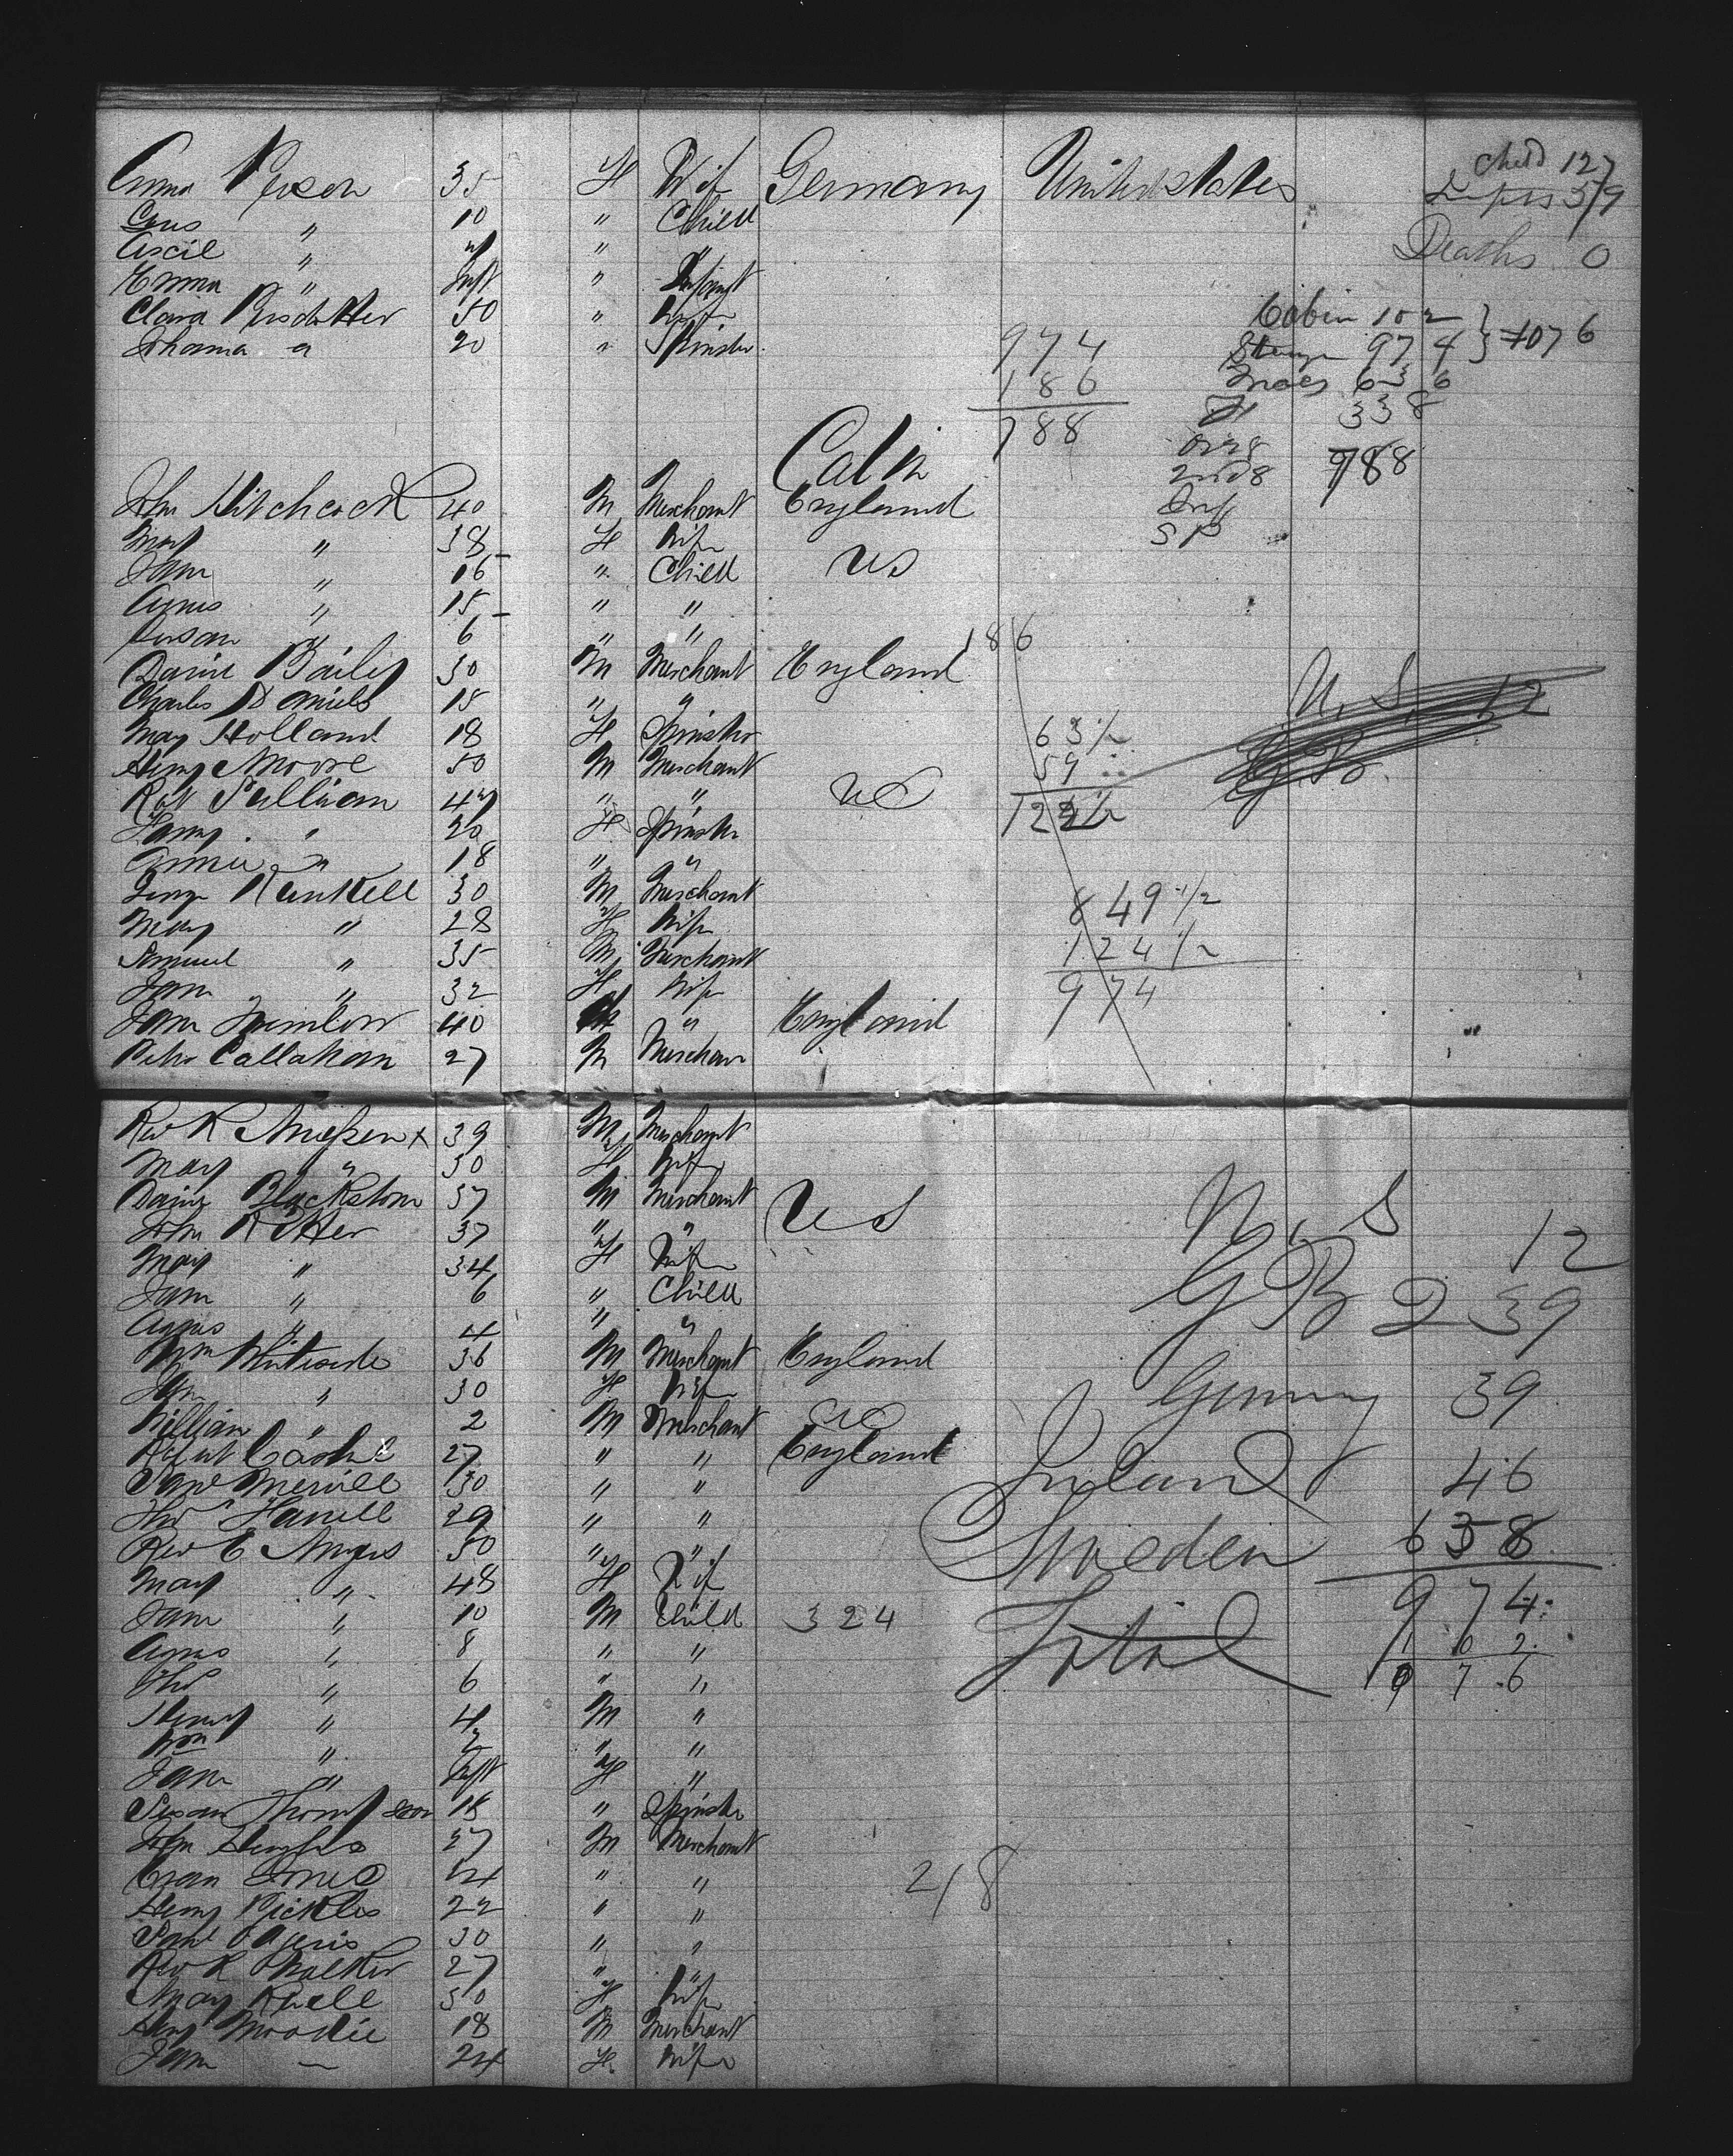 Anna 35 F Wif Germany United states
Gus " 10 " Child
" " "
Emma " Inft " Infant
Clara 50 " Wife
20 " Spinster
Child 127
Infts 59
Deaths 0
Cabin 102 } 1076
Steerage 974
Males 636
F 338
788
Inf
SP
974
186
788
Cabin
John Hitchcock 40 M Merchant England
Mary " 38 F Wife
Jane " 16 " Child US
Agnes " 15 " "
Susan " 6 " "
David Bailey 30 M Merchant England
Charles Daniels 15 " "
Mary Holland 18 F Spinster
Henry Moore 50 M Merchant
Robt Sullivan 47 " " US
Fanny " 20 F Spinster
Annie " 18 " "
George Runkell 30 M Merchant
Mary " 28 F Wife
Samuel " 35 M Merchant
Jane " 32 F Wife
Jane 40 " England
Peter Callahan 27 M Merchan
186
63 1/2
59
849 1/2
124 1/2
974
U. S. 12
G B.
Rev R x 39 M Merchant
Mary " 30 F Wife
Blackstone 37 M Merchant US
John Ritter 37 " "
Mary " 34 F Wife
Jane " 6 " Child
Agnes " 4 " "
Wm Whiteside 36 M Merchant England
Jane " 30 F Wife
William " 2 M Merchant US
27 " " England
Saml Merrill 30 " "
Thos 29 " "
Rev E Angus 50 " "
Mary " 48 F Wif
Jane " 10 M Child 324
Agnes " 8 " "
Thos " 6 " "
Henry " 4 M "
Wm " 2 " "
Jane " Inft F "
Susan Thompson 18 " Spinster
John Hughes 27 M Merchant
Evan Jones 24 " "
Henry Pickles 22 " "
Saml 30 " "
Rev R Walker 27 " "
Mary 50 F Wife
Henry Moodie 18 M Merchant
Jane — 24 F. Wife
U. S 12
G B 239
Germany 39
Ireland 46
Sweden 638
Total 974
102
1076
218